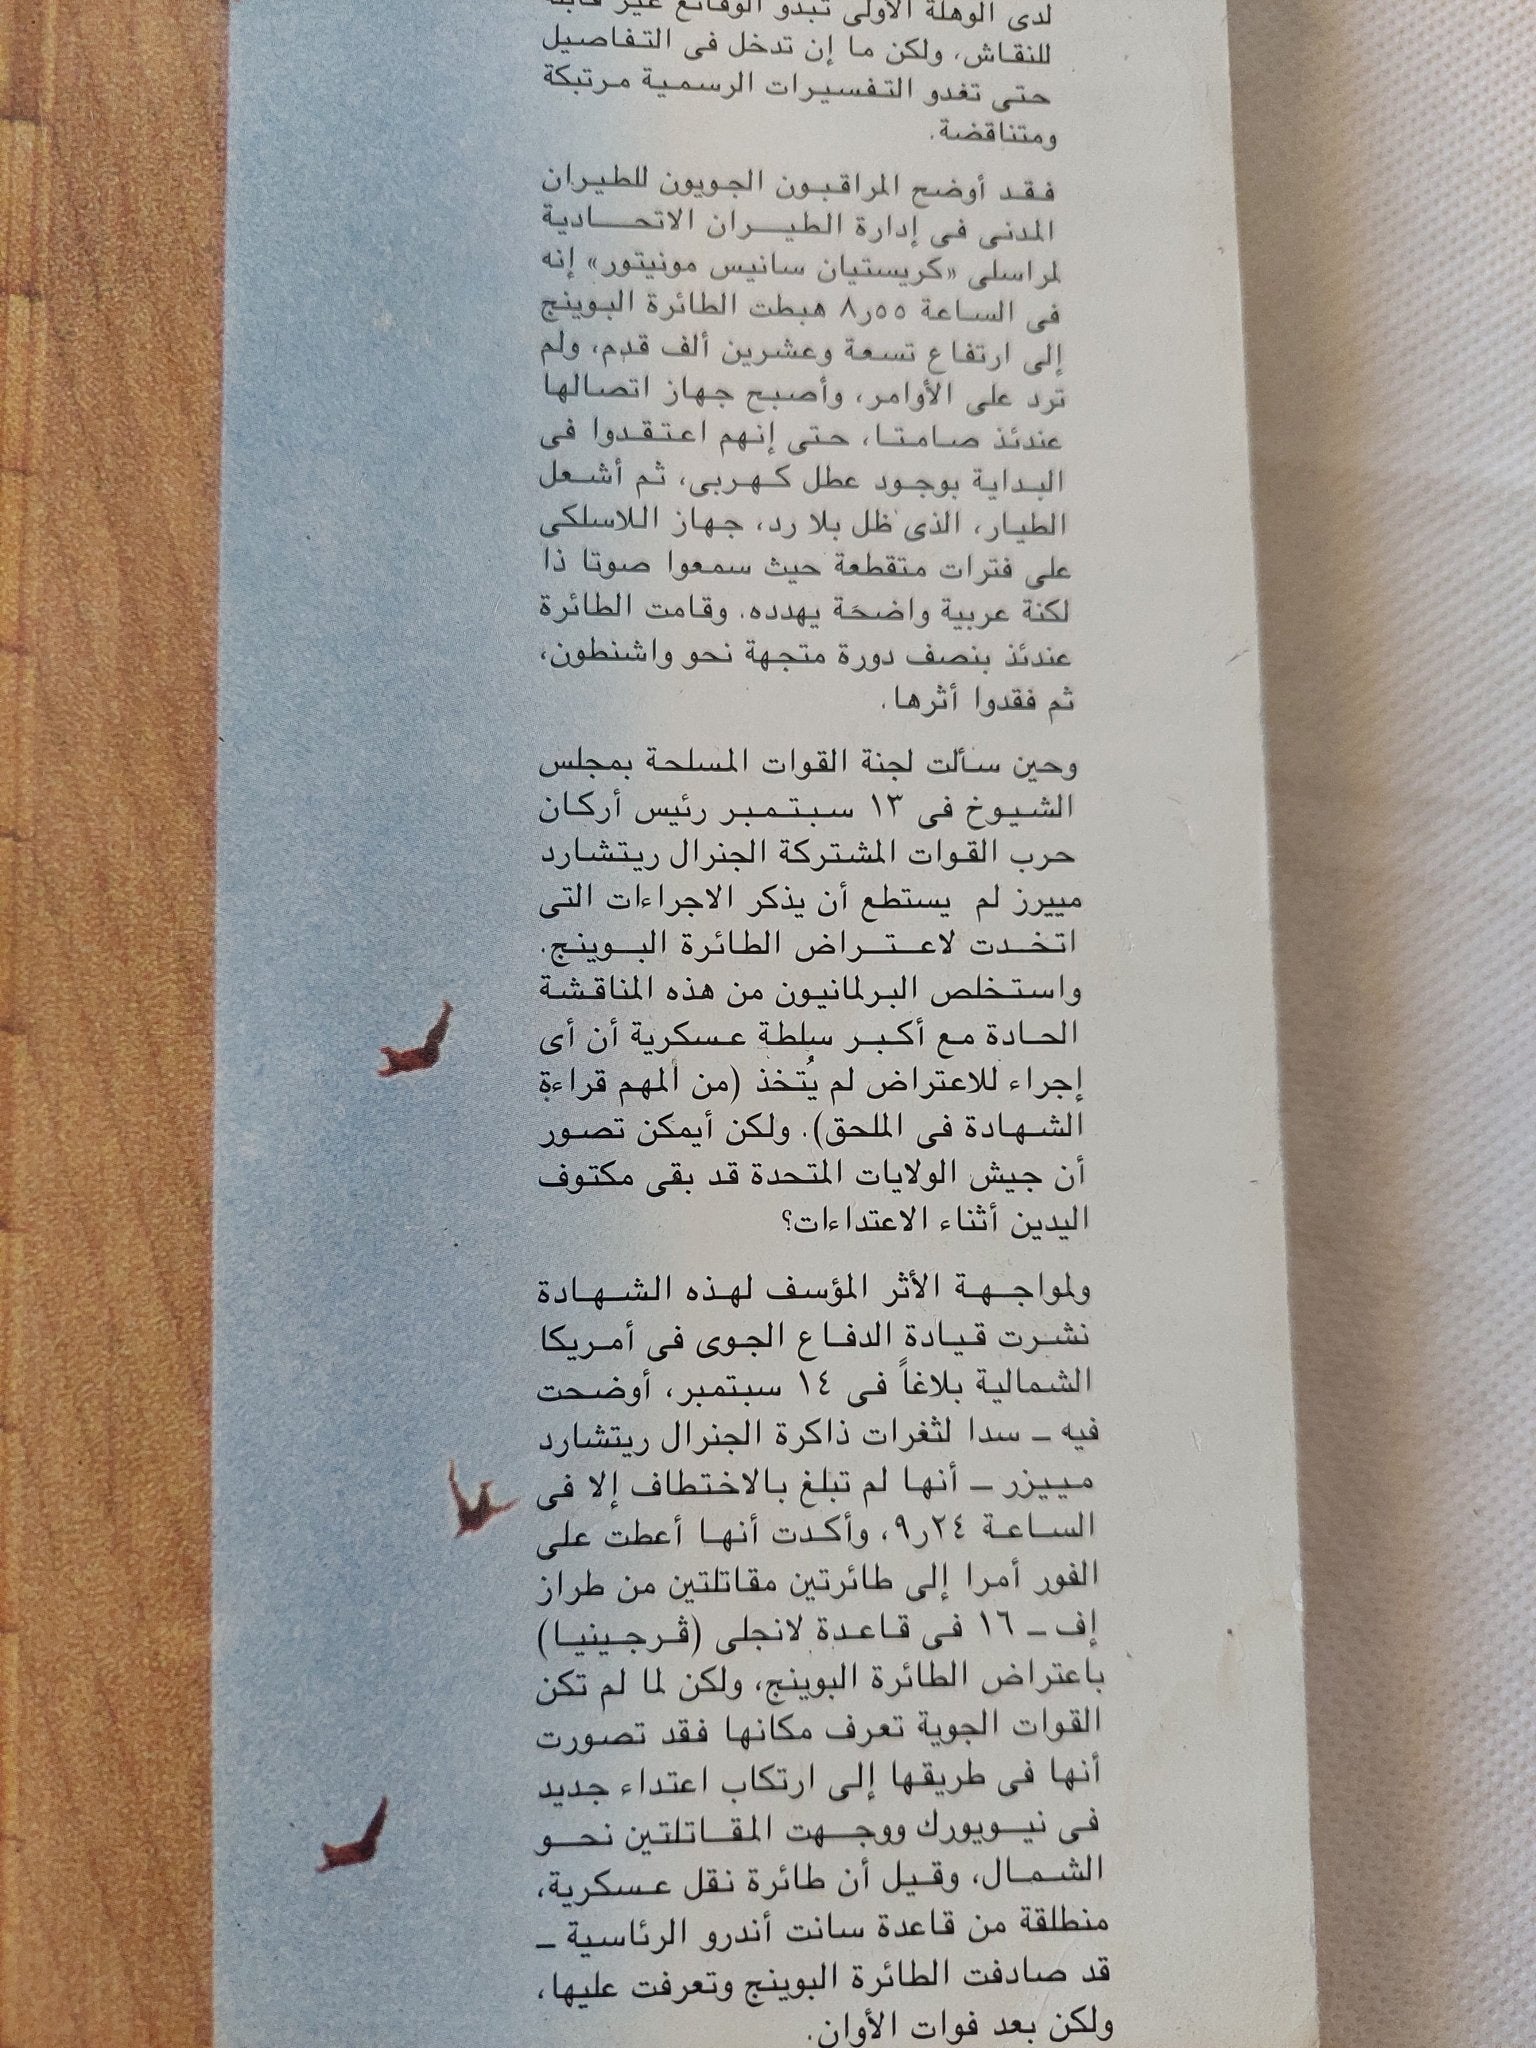 لدى الوهلة الأولى تبدو الوقائع غير قابلة
للنقاش، ولكن ما إن تدخل فى التفاصيل
حتى تغدو التفسيرات الرسمية مرتبكة
ومتناقضة.
فقد أوضح المراقبون الجويون للطيران
المدنى فى إدارة الطيران الاتحادية
لمراسلى «كريستيان سانيس مونيتور» إنه
فى الساعة ٨ر٥٥ هبطت الطائرة البوينج
إلى ارتفاع تسعة وعشرين ألف قدم، ولم
ترد على الأوامر، وأصبح جهاز اتصالها
عندئذ صامتا، حتى إنهم اعتقدوا فى
البداية بوجود عطل كهربى، ثم أشعل
الطيار، الذى ظل بلا رد، جهاز اللاسلكى
على فترات متقطعة حيث سمعوا صوتا ذا
لكنة عربية واضحَة يهدده. وقامت الطائرة
عندئذ بنصف دورة متجهة نحو واشنطون،
ثم فقدوا أثرها.
وحين سألت لجنة القوات المسلحة بمجلس
الشيوخ فى ١٣ سبتمبر رئيس أركان
حرب القوات المشتركة الجنرال ريتشارد
مييرز لم يستطع أن يذكر الاجراءات التى
اتخدت لاعتراض الطائرة البوينج.
واستخلص البرلمانيون من هذه المناقشة
الحادة مع أكبر سلطة عسكرية أن أى
إجراء للاعتراض لم يُتخذ (من ألمهم قراءة
الشهادة فى الملحق). ولكن أيمكن تصور
أن جيش الولايات المتحدة قد بقى مكتوف
اليدين أثناء الاعتداءات؟
ولمواجهة الأثر المؤسف لهذه الشهادة
نشرت قيادة الدفاع الجوى فى أمريكا
الشمالية بلاغاً فى ١٤ سبتمبر، أوضحت
فيه ــ سدا لثغرات ذاكرة الجنرال ريتشارد
مييزر ــ أنها لم تبلغ بالاختطاف إلا فى
الساعة ٩ر٢٤، وأكدت أنها أعطت على
الفور أمرا إلى طائرتين مقاتلتين من طراز
إف ــ ١٦ فى قاعدة لانجلى (ڤرجينيا)
باعتراض الطائرة البوينج، ولكن لما لم تكن
القوات الجوية تعرف مكانها فقد تصورت
أنها فى طريقها إلى ارتكاب اعتداء جديد
فى نيويورك ووجهت المقاتلتين نحو
الشمال، وقيل أن طائرة نقل عسكرية،
منطلقة من قاعدة سانت أندرو الرئاسية ــ
قد صادفت الطائرة البوينج وتعرفت عليها،
ولكن بعد فوات الأوان.